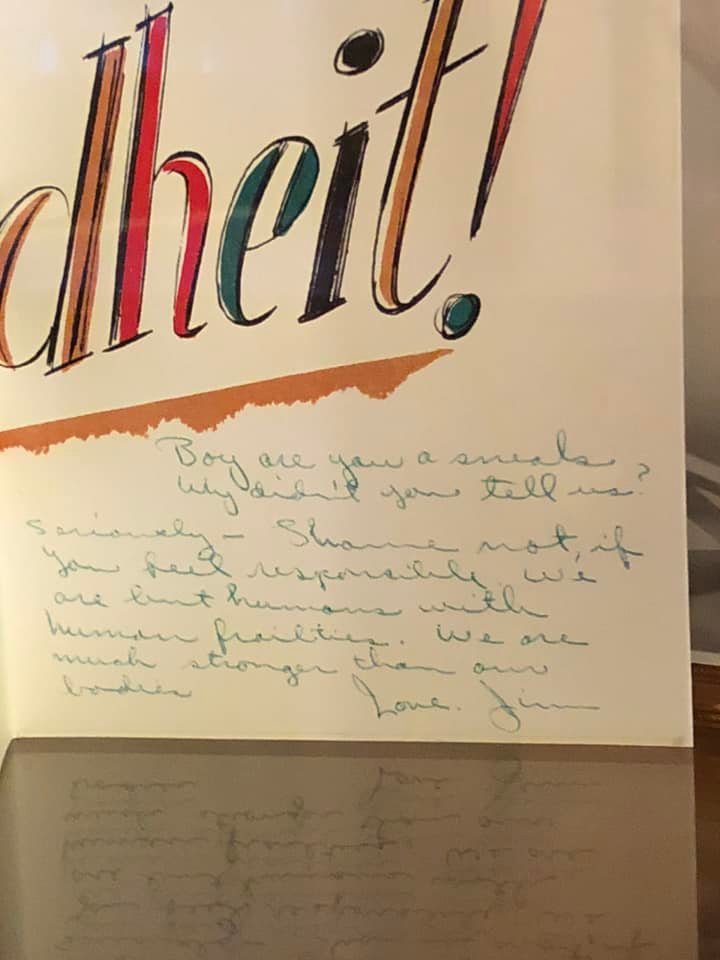 dheit!
Boy are you a sneak
Why didn't you tell us?
Seriously – Shame not, if
you feel responsible. We
are but humans with
human frailties. We are
much stronger than our
bodies
Love. Jim